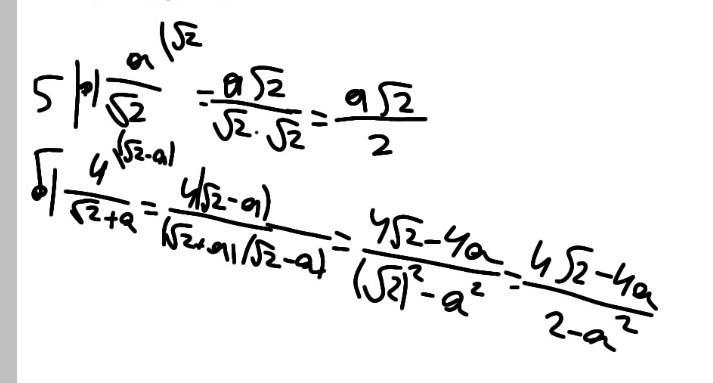 5 а) a^(√2 / √2 = a√2 / √2·√2 = a√2 / 2
б) 4^(√2-a) / √2+a = 4(√2-a) / (√2+a)(√2-a) = 4√2-4a / (√2)²-a² = 4√2-4a / 2-a²